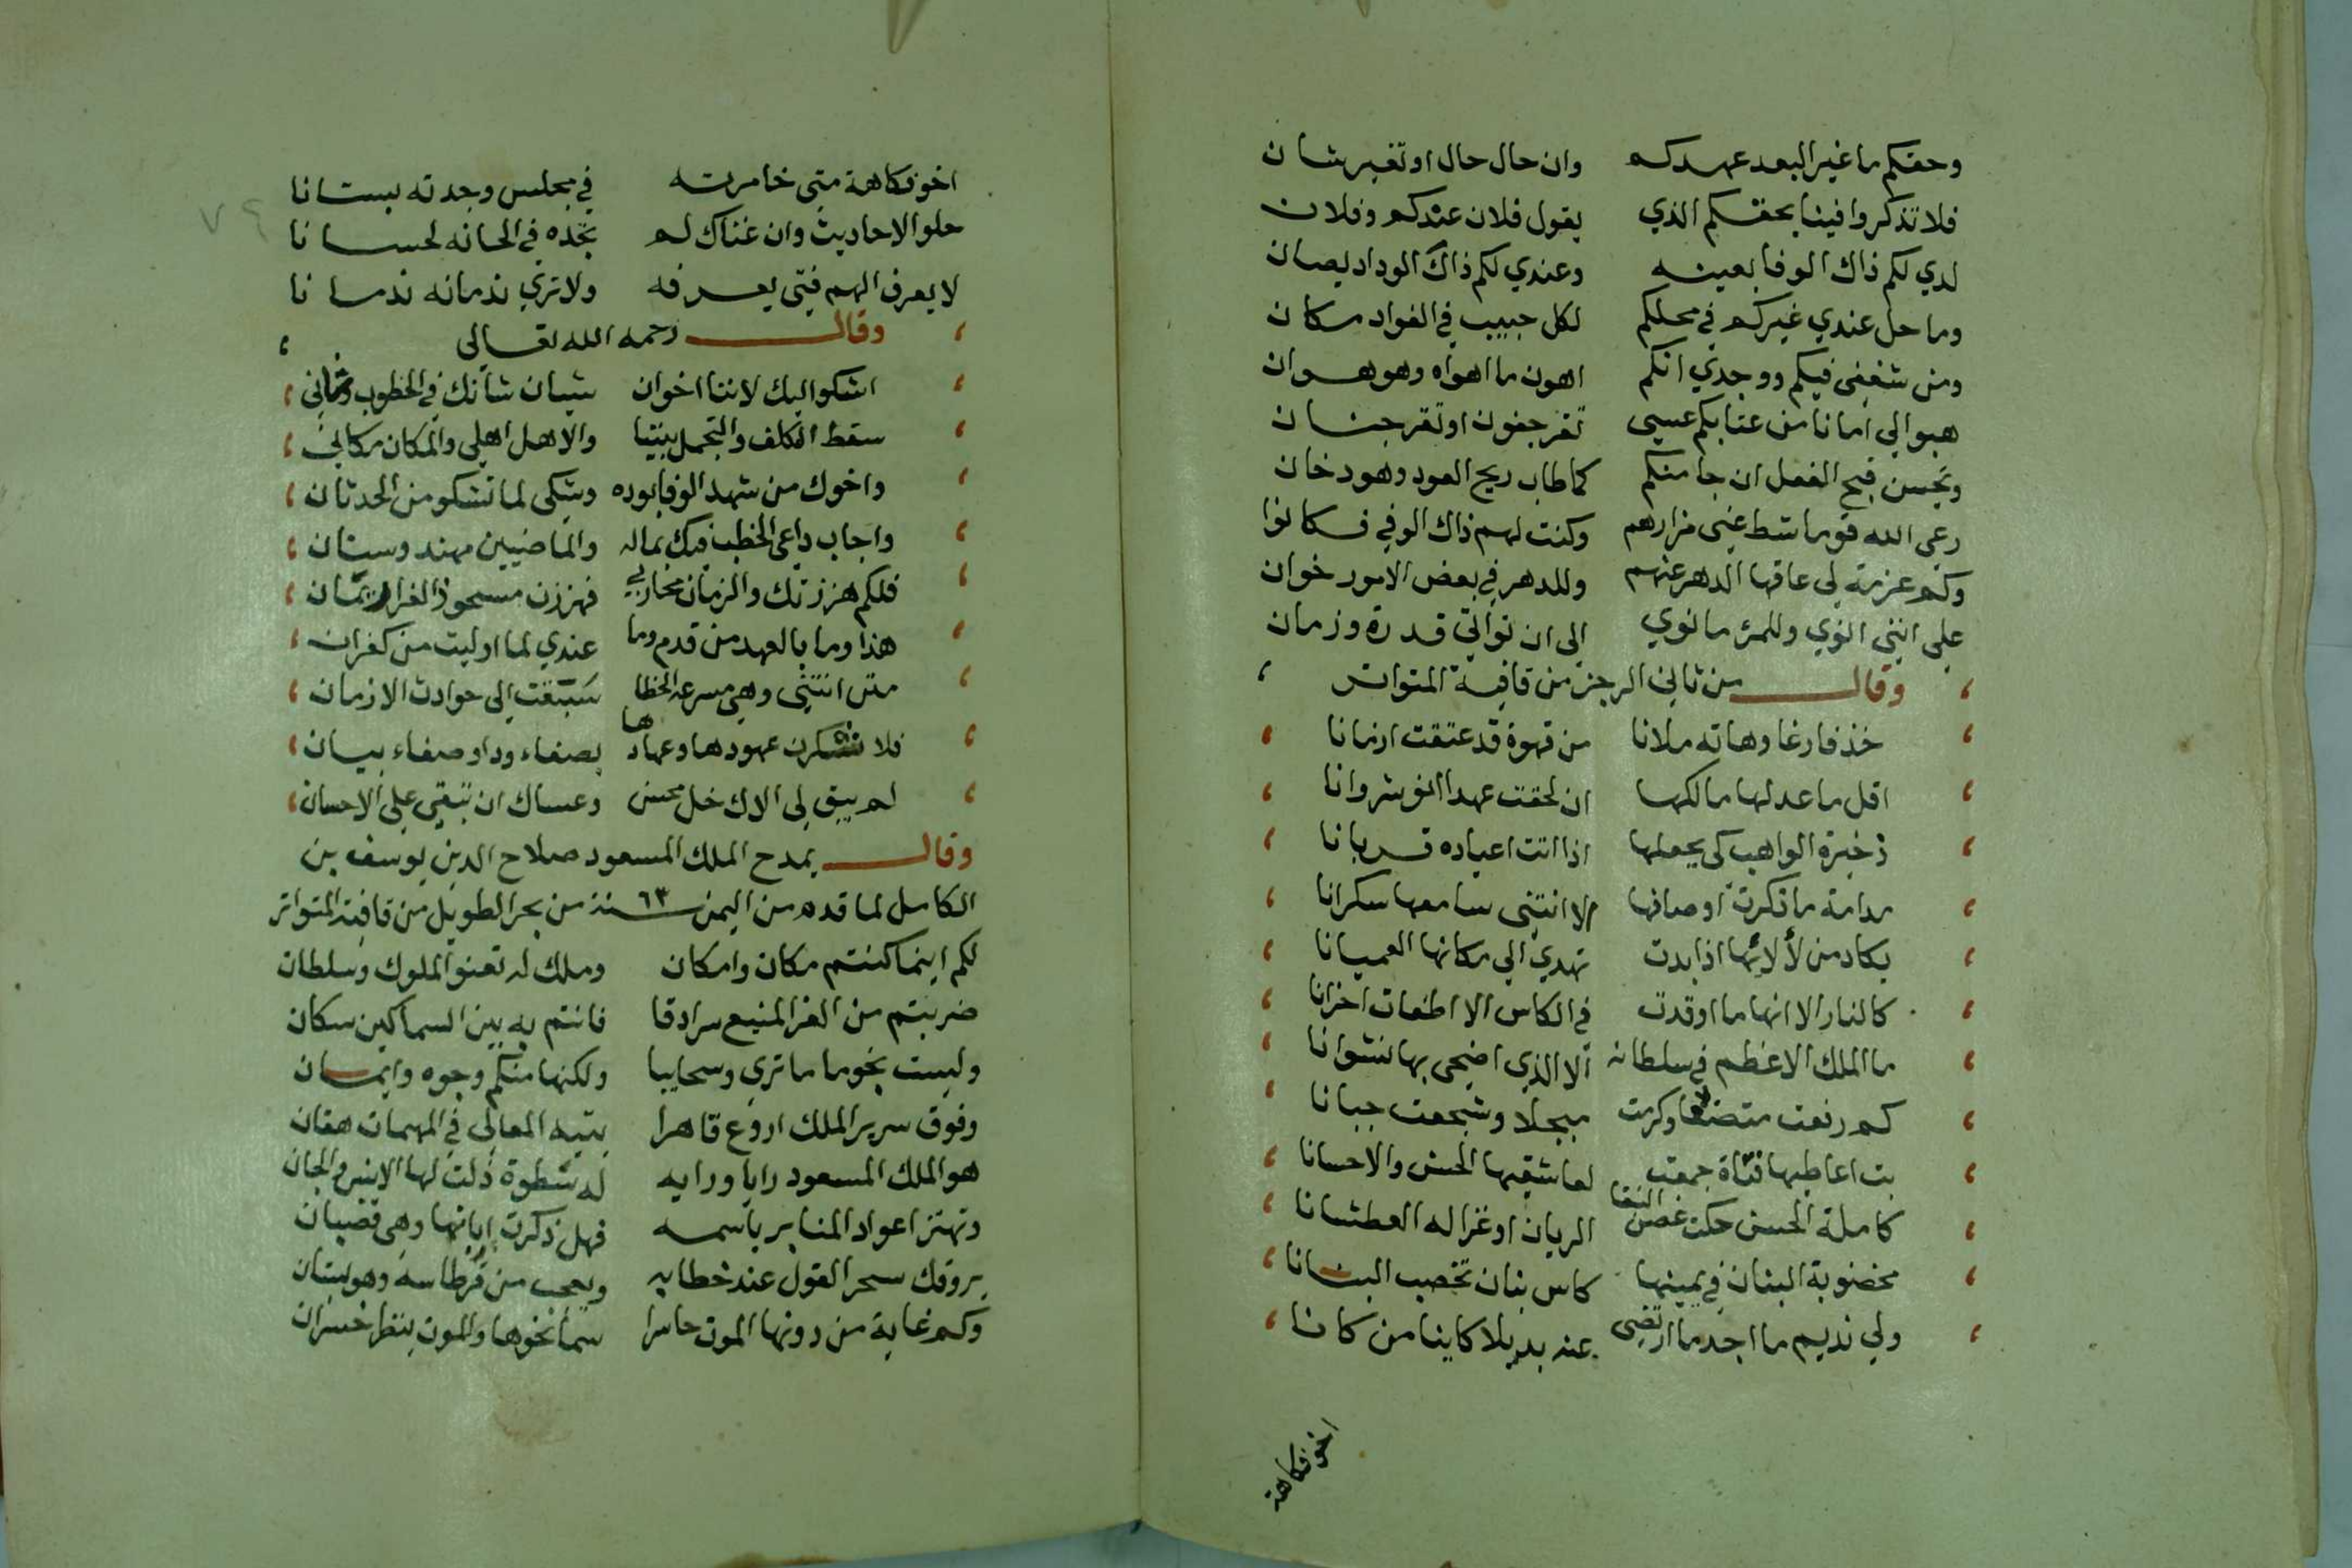 وحقكم ما غير البعد عهدكم وان حال حال او تغير شان
فلا تذكروا فينا بحقكم الذي يقول فلان عندكم وفلان
لدي لكم ذاك الوفا بعينه وعندي لكم ذاك الوداد يصان
وما حل عندي غيركم في محلكم لكل حبيب في الفواد مكان
ومن شغفي فيكم ووجدي انكم اهون ما اهواه وهو هوان
هبوا لي امانا من عتابكم عسى تقر جفون او تقر جنان
ويحسن قبح الفعل ان جا منكم كما طاب ريح العود وهو دخان
رعى الله قوما شط عني مزارهم وكنت لهم ذاك الوفي فكانوا
وكم عزمة لي عاقها الدهر عنهم وللدهر في بعض الامور خوان
على انني انوي وللمرء ما نوي الى ان تواتي قدرة وزمان
وقال من ثاني الرجز من قافية المتواتر
خذ فارغا وهاته ملانا من قهوة قد عتقت ازمانا
اقل ما عد لها مالكها ان لحقت عهد انوشروانا
ذخيرة الواهب كي يجعلها اذا اتت اعياده قربانا
مدامة ما ذكرت اوصافها الا انتنى سامعها سكرانا
يكاد من لألائها اذا بدت تهدي الي مكانها العميانا
كالنار الا انها ما اوقدت في الكاس الا اطفات احزانا
ما الملك الاعظم في سلطانه الا الذي اضحى بها نشوانا
كم رفعت متضعا وكرمت مبجلا وشجعت جبانا
بت اعاطيها فتاة جمعت لعاشقيها الحسن والاحسانا
كاملة الحسن حكت غصن النقا الريان او غزاله العطشانا
مخضوبة البنان في يمينها كاس بنان تخصب البنانا
ولي نديم ما اجد ما ارتضى عنه بديلا كاينا من كانا
اخو فكاهة
٧٩
اخو فكاهة متى خامرته في مجلس وجدته بستانا
حلو الاحاديث وان غناك لم تجده في الحانه لحسانا
لا يعرف الهم فتى يعرفه ولا تري ندمانه ندمانا
وقال رحمه الله تعالى
اشكوا اليك لاننا اخوان شيان شانك في الخطوب وشاني
سقط التكلف والتجمل بيننا والاهل اهلي والمكان مكاني
واخوك من شهد الوفا بوده وشكى لما تشكو من الحدثان
واجاب داعي الخطب فيك بماله والماضيين مهند وسنان
فلكم هززتك والزمان محاربي فهززت مسحوذ الغرار يمان
هذا وما بالعهد من قدم وما عندي لما اوليت من كفران
منن انتني وهي مسرعة الخطا سبقت الى حوادث الازمان
فلا شكرن عهودها وعهادها بصفاء ود او صفاء بيان
لم يبق لي الاك خل محسن وعساك ان تبقي على الاحسان
وقال يمدح الملك المسعود صلاح الدين يوسف بن
الكامل لما قدم من اليمن سنة ٦٣ من بحر الطويل من قافية المتواتر
لكم اينما كنتم مكان وامكان وملك له تعنو الملوك وسلطان
ضربتم من العز المنيع سرادقا فانتم به بين السماكين سكان
وليست نجوما ما تري وسحايبا ولكنها منكم وجوه وايمان
وفوق سرير الملك اروع قاهرا بيته المعالي في المهمات
هو الملك المسعود رايا ورايه له سطوة ذلت لها الانس والجان
وتهتز اعواد المنابر باسمه فهل ذكرت اياتها وهي قضبان
يروقك سحر القول عند خطابه ويعجب من قرطاسه وهو بستان
وكم غابة من دونها الموت حاسرا سما نحوها والموت ينظر خسران